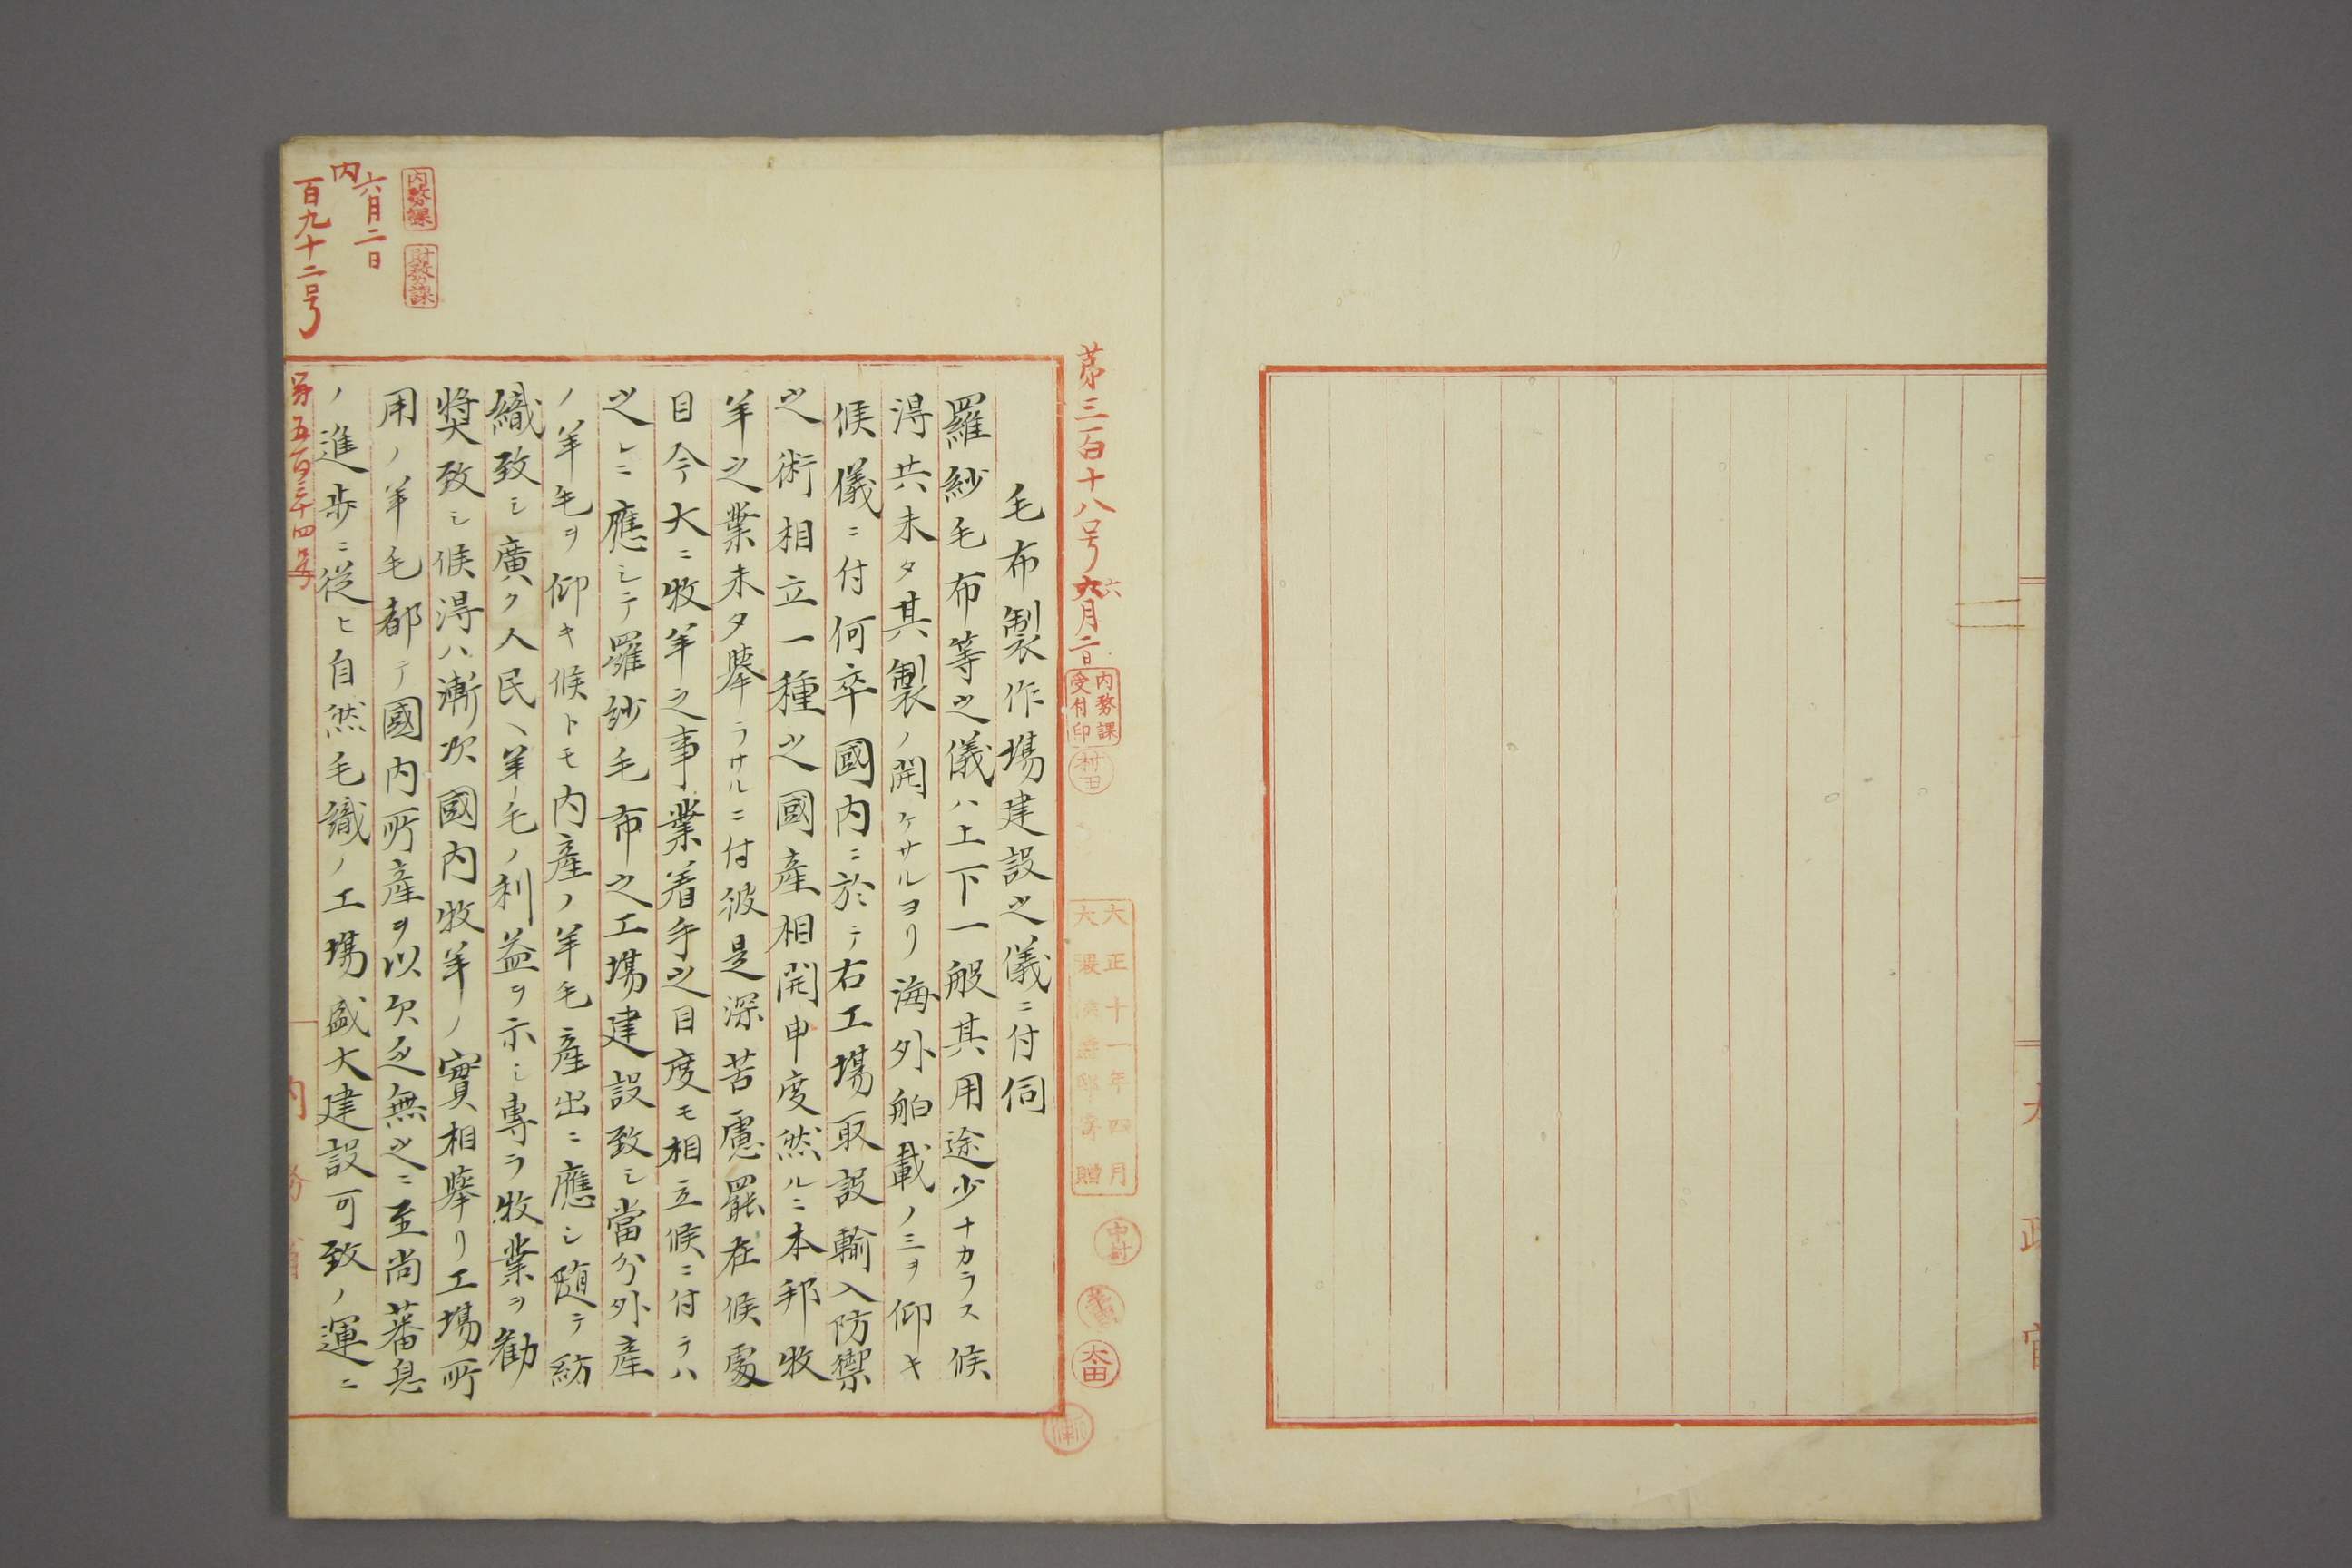 第三百十八号 六月二日
内務課
受付印
村田
大正十一年四月
大隈侯爵邸寄贈
中村
太田
毛布製作場建設之儀ニ付伺
羅紗毛布等之儀ハ上下一般其用途少ナカラス候
得共未タ其製ノ開ケサルヨリ海外舶載ノミヲ仰キ
候儀ニ付何卒國内ニ於テ右工場取設輸入防禦
之術相立一種之國産相開申度然ルニ本邦牧
羊之業未タ擧ラサルニ付彼是深苦慮罷在候處
目今大ニ牧羊之事業着手之目度モ相立候ニ付テハ
之レニ應シテ羅紗毛布之工場建設致シ當分外産
ノ羊毛ヲ仰キ候トモ内産ノ羊毛産出ニ應シ随テ紡
織致シ廣ク人民ヘ羊毛ノ利益ヲ示シ專ラ牧業ヲ勧
奨致シ候得ハ漸次國内牧羊ノ實相擧リ工場所
用ノ羊毛都テ國内所産ヲ以欠乏無之ニ至尚蕃息
ノ進歩ニ従ヒ自然毛織ノ工場盛大建設可致ノ運ニ
内務課
財務課
六月二日
内
百九十二号
第五百三十四号
内務省
太政官